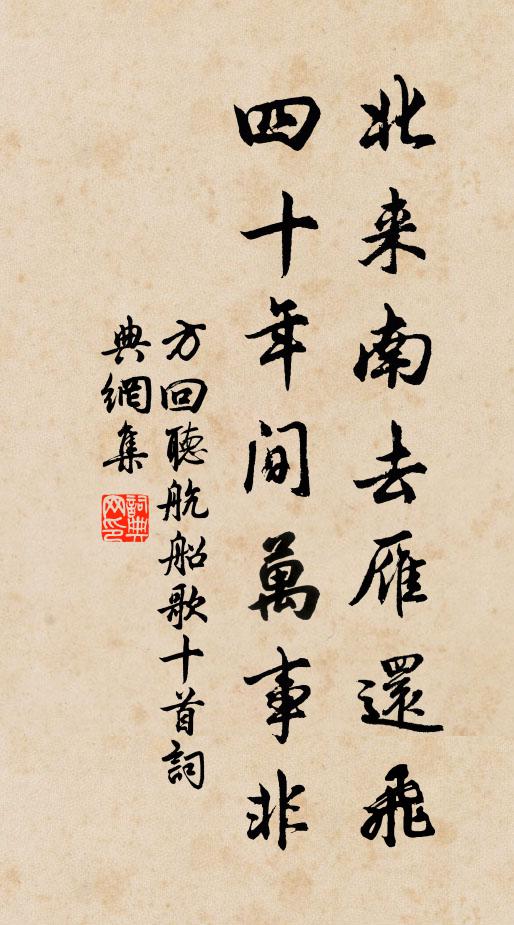 北来南去雁還飛
四十年間萬事非
方回聽航船歌十首詞
典網集
詞典网印